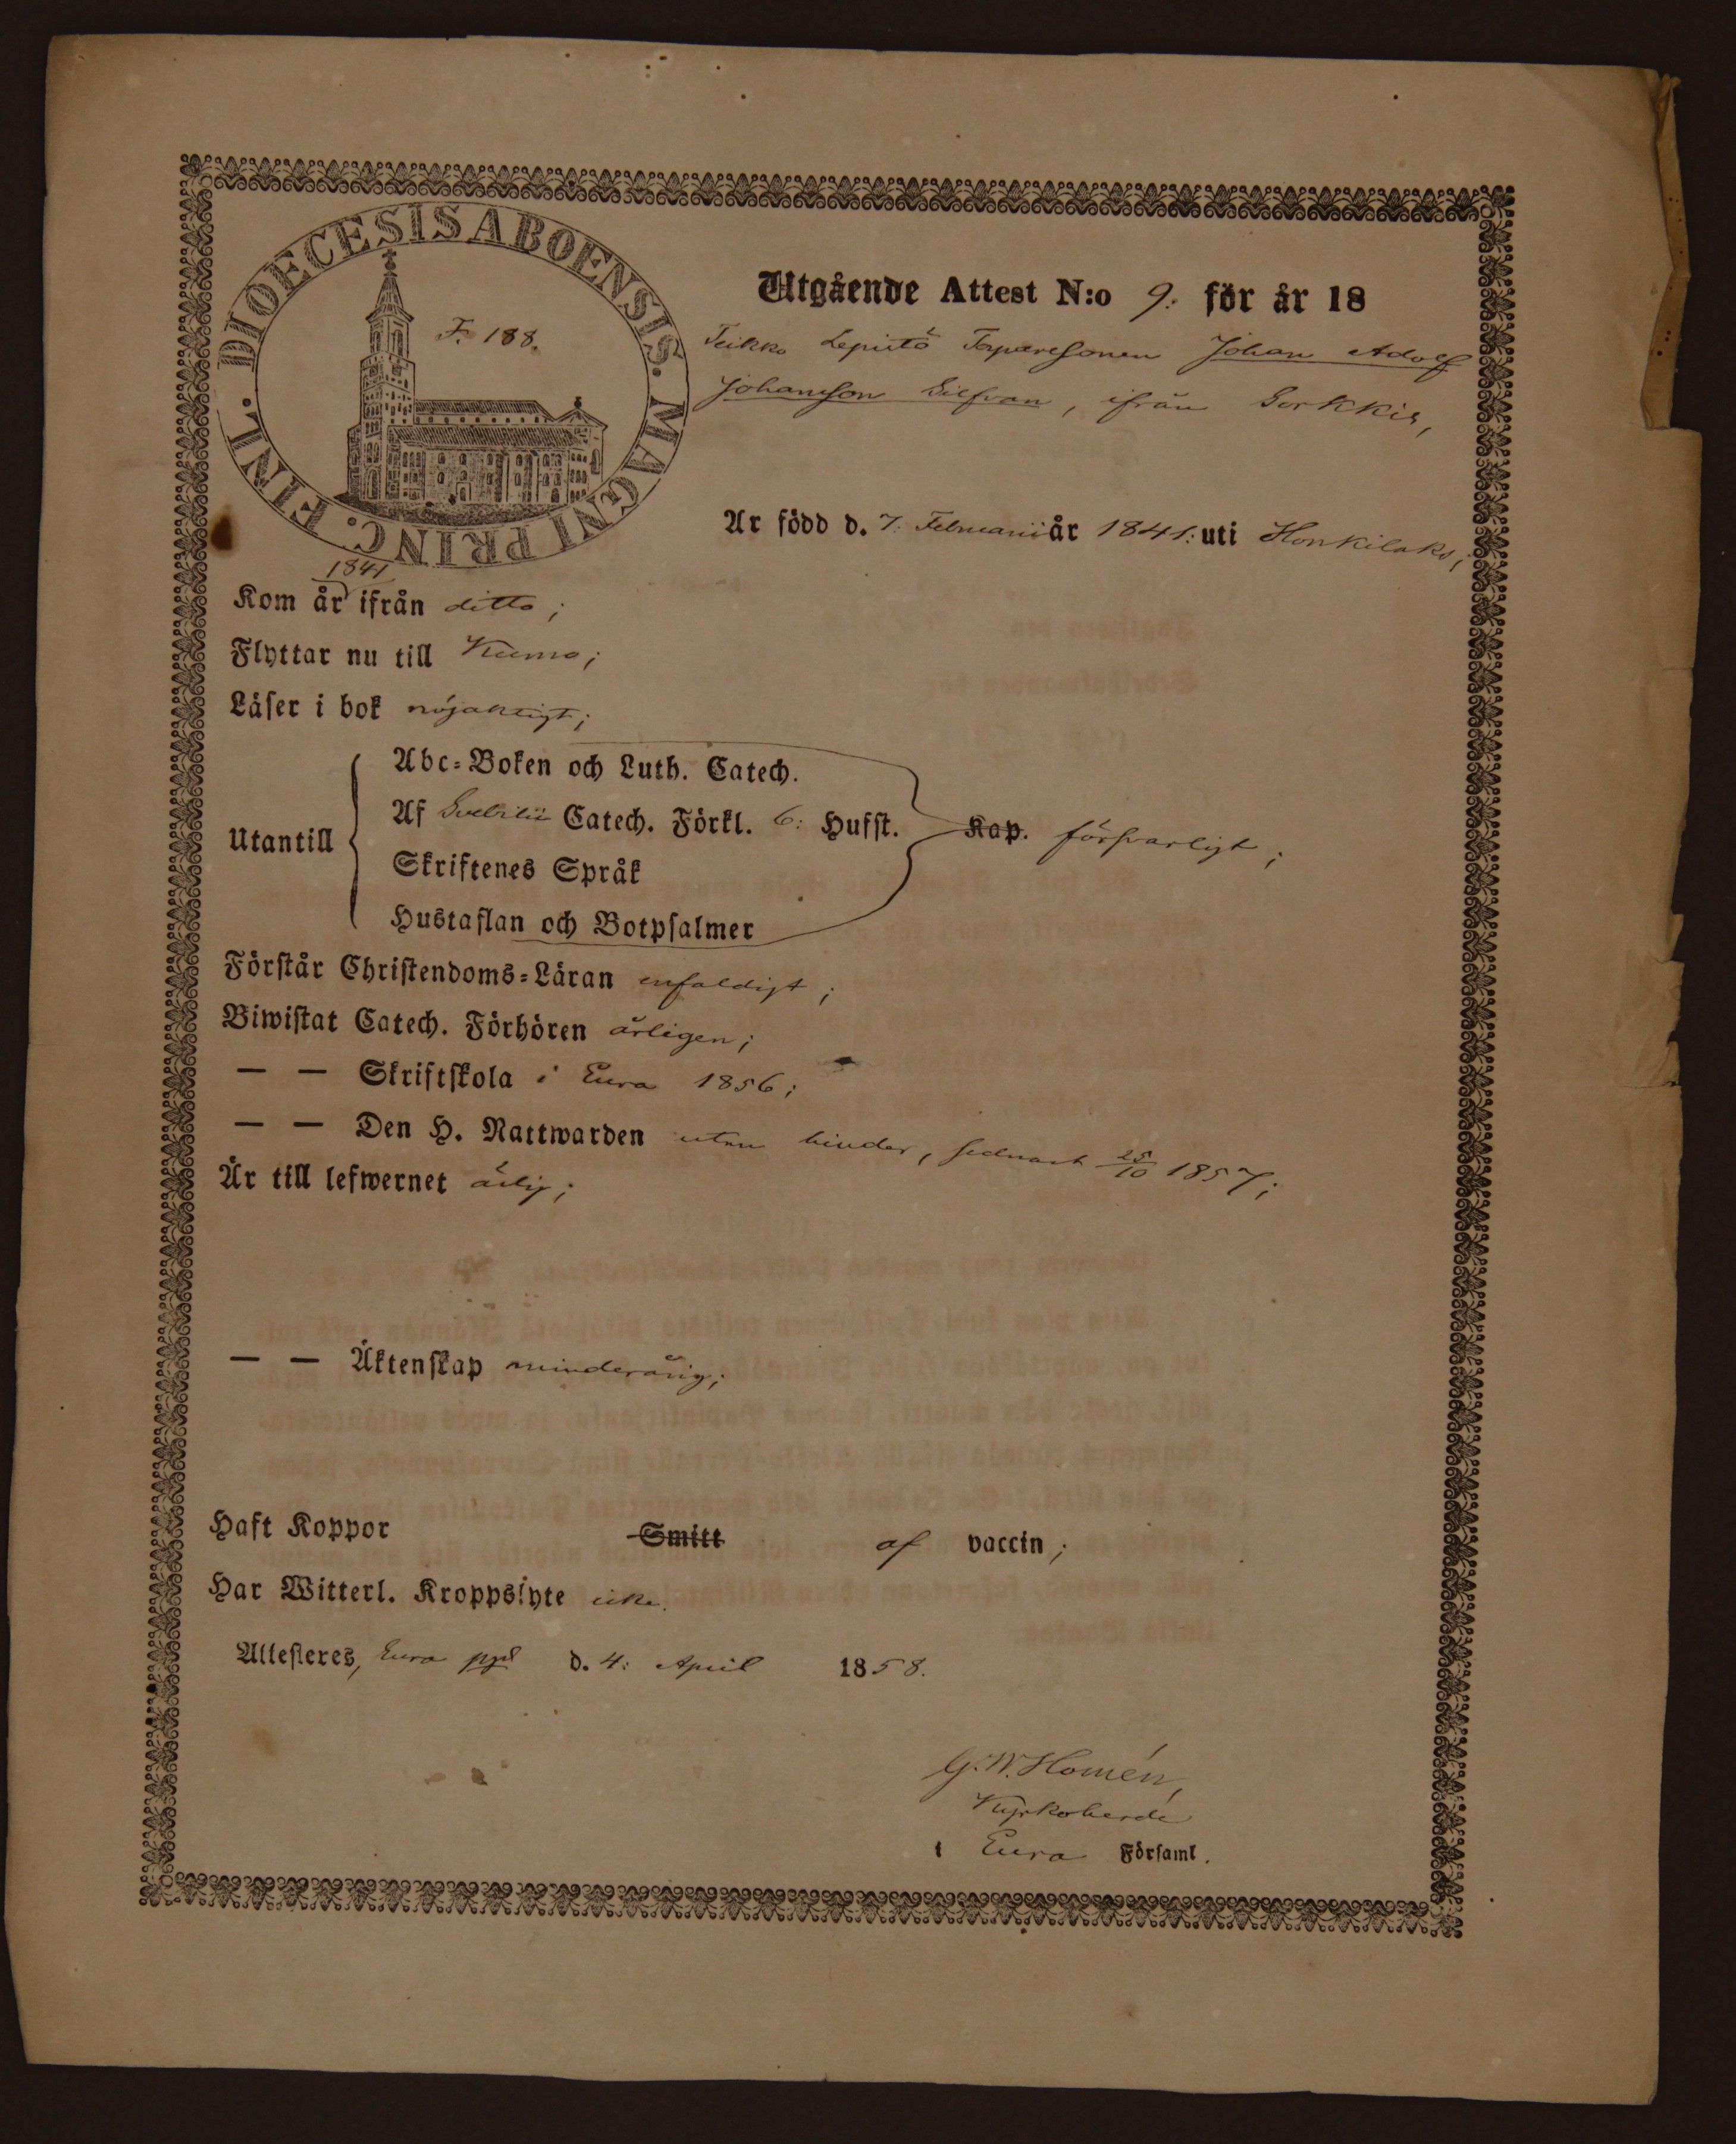 DIOECESIS ABOENSIS. MAGNI PRINC. FINL.
F. 188.
Utgående Attest N:o 9. för år 18
Johan Adolf
Johansson Silfvan, ifrån Sorkkis,
Är född d. 7. Februarii år 1841: uti Honkilaks;
1841
Kom år ifrån ditto;
Flyttar nu till Kumo;
Läser i bok nöjaktigt;
Utantill
Abc-Boken och Luth. Catech.
Af Svebilii Catech. Förkl. 6: Hufst. Kap. försvarligt;
Skriftenes Språk
Hustaflan och Botpsalmer
Förstår Christendoms-Läran enfaldigt;
Biwistat Catech. Förhören årligen;
— — Skriftskola i Eura 1856;
— — Den H. Nattwarden utan hinder, sednast 25/10 1857;
Är till lefwernet ärlig;
— — Äktenskap minderårig;
Haft Koppor Smitt af vaccin;
Har Witterl. Kroppslyte icke.
Attesteres, Eura d. 4: April 1858.
G. W. Homén,
Kyrkoherde
i Eura Församl.